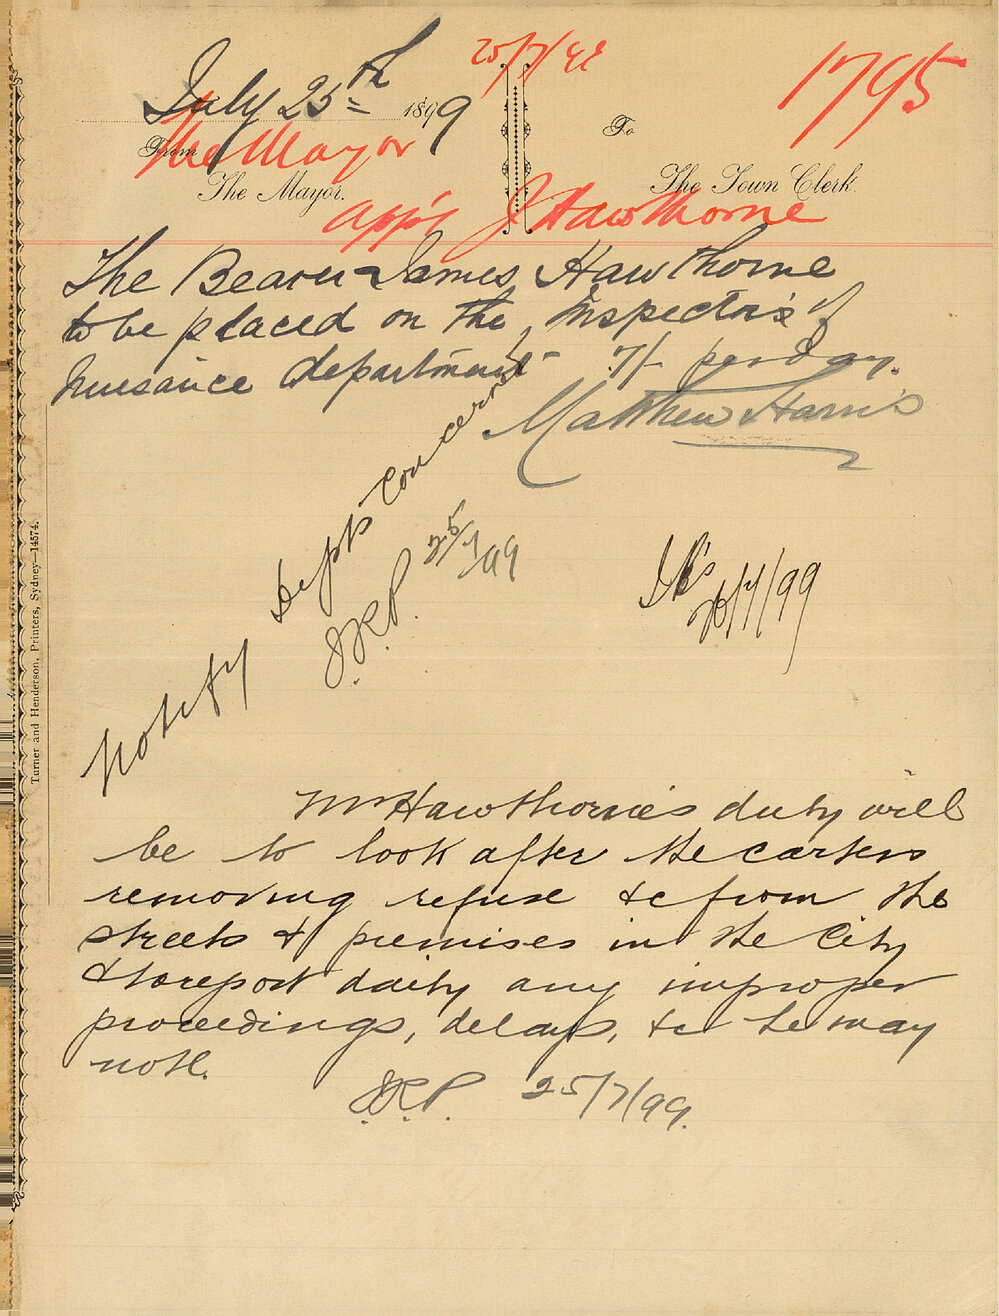 25/7/99
1795
July 25th 1899
From
To
The Mayor
The Mayor.
The Town Clerk.
app't J Hawthorne
The Bearer James Hawthorne
to be placed on the Inspectors of
Nuisance department 7/- per day.
Matthew Harris
Notify Depts concerned
J.R.P. 25/7/99
26/7/99
Mr Hawthorne's duty will
be to look after the carters
removing refuse &c from the
streets & premises in the City
& to report daily any improper
proceedings, delays, &c he may
note.
J.R.P. 25/7/99.
Turner and Henderson, Printers, Sydney—14574.